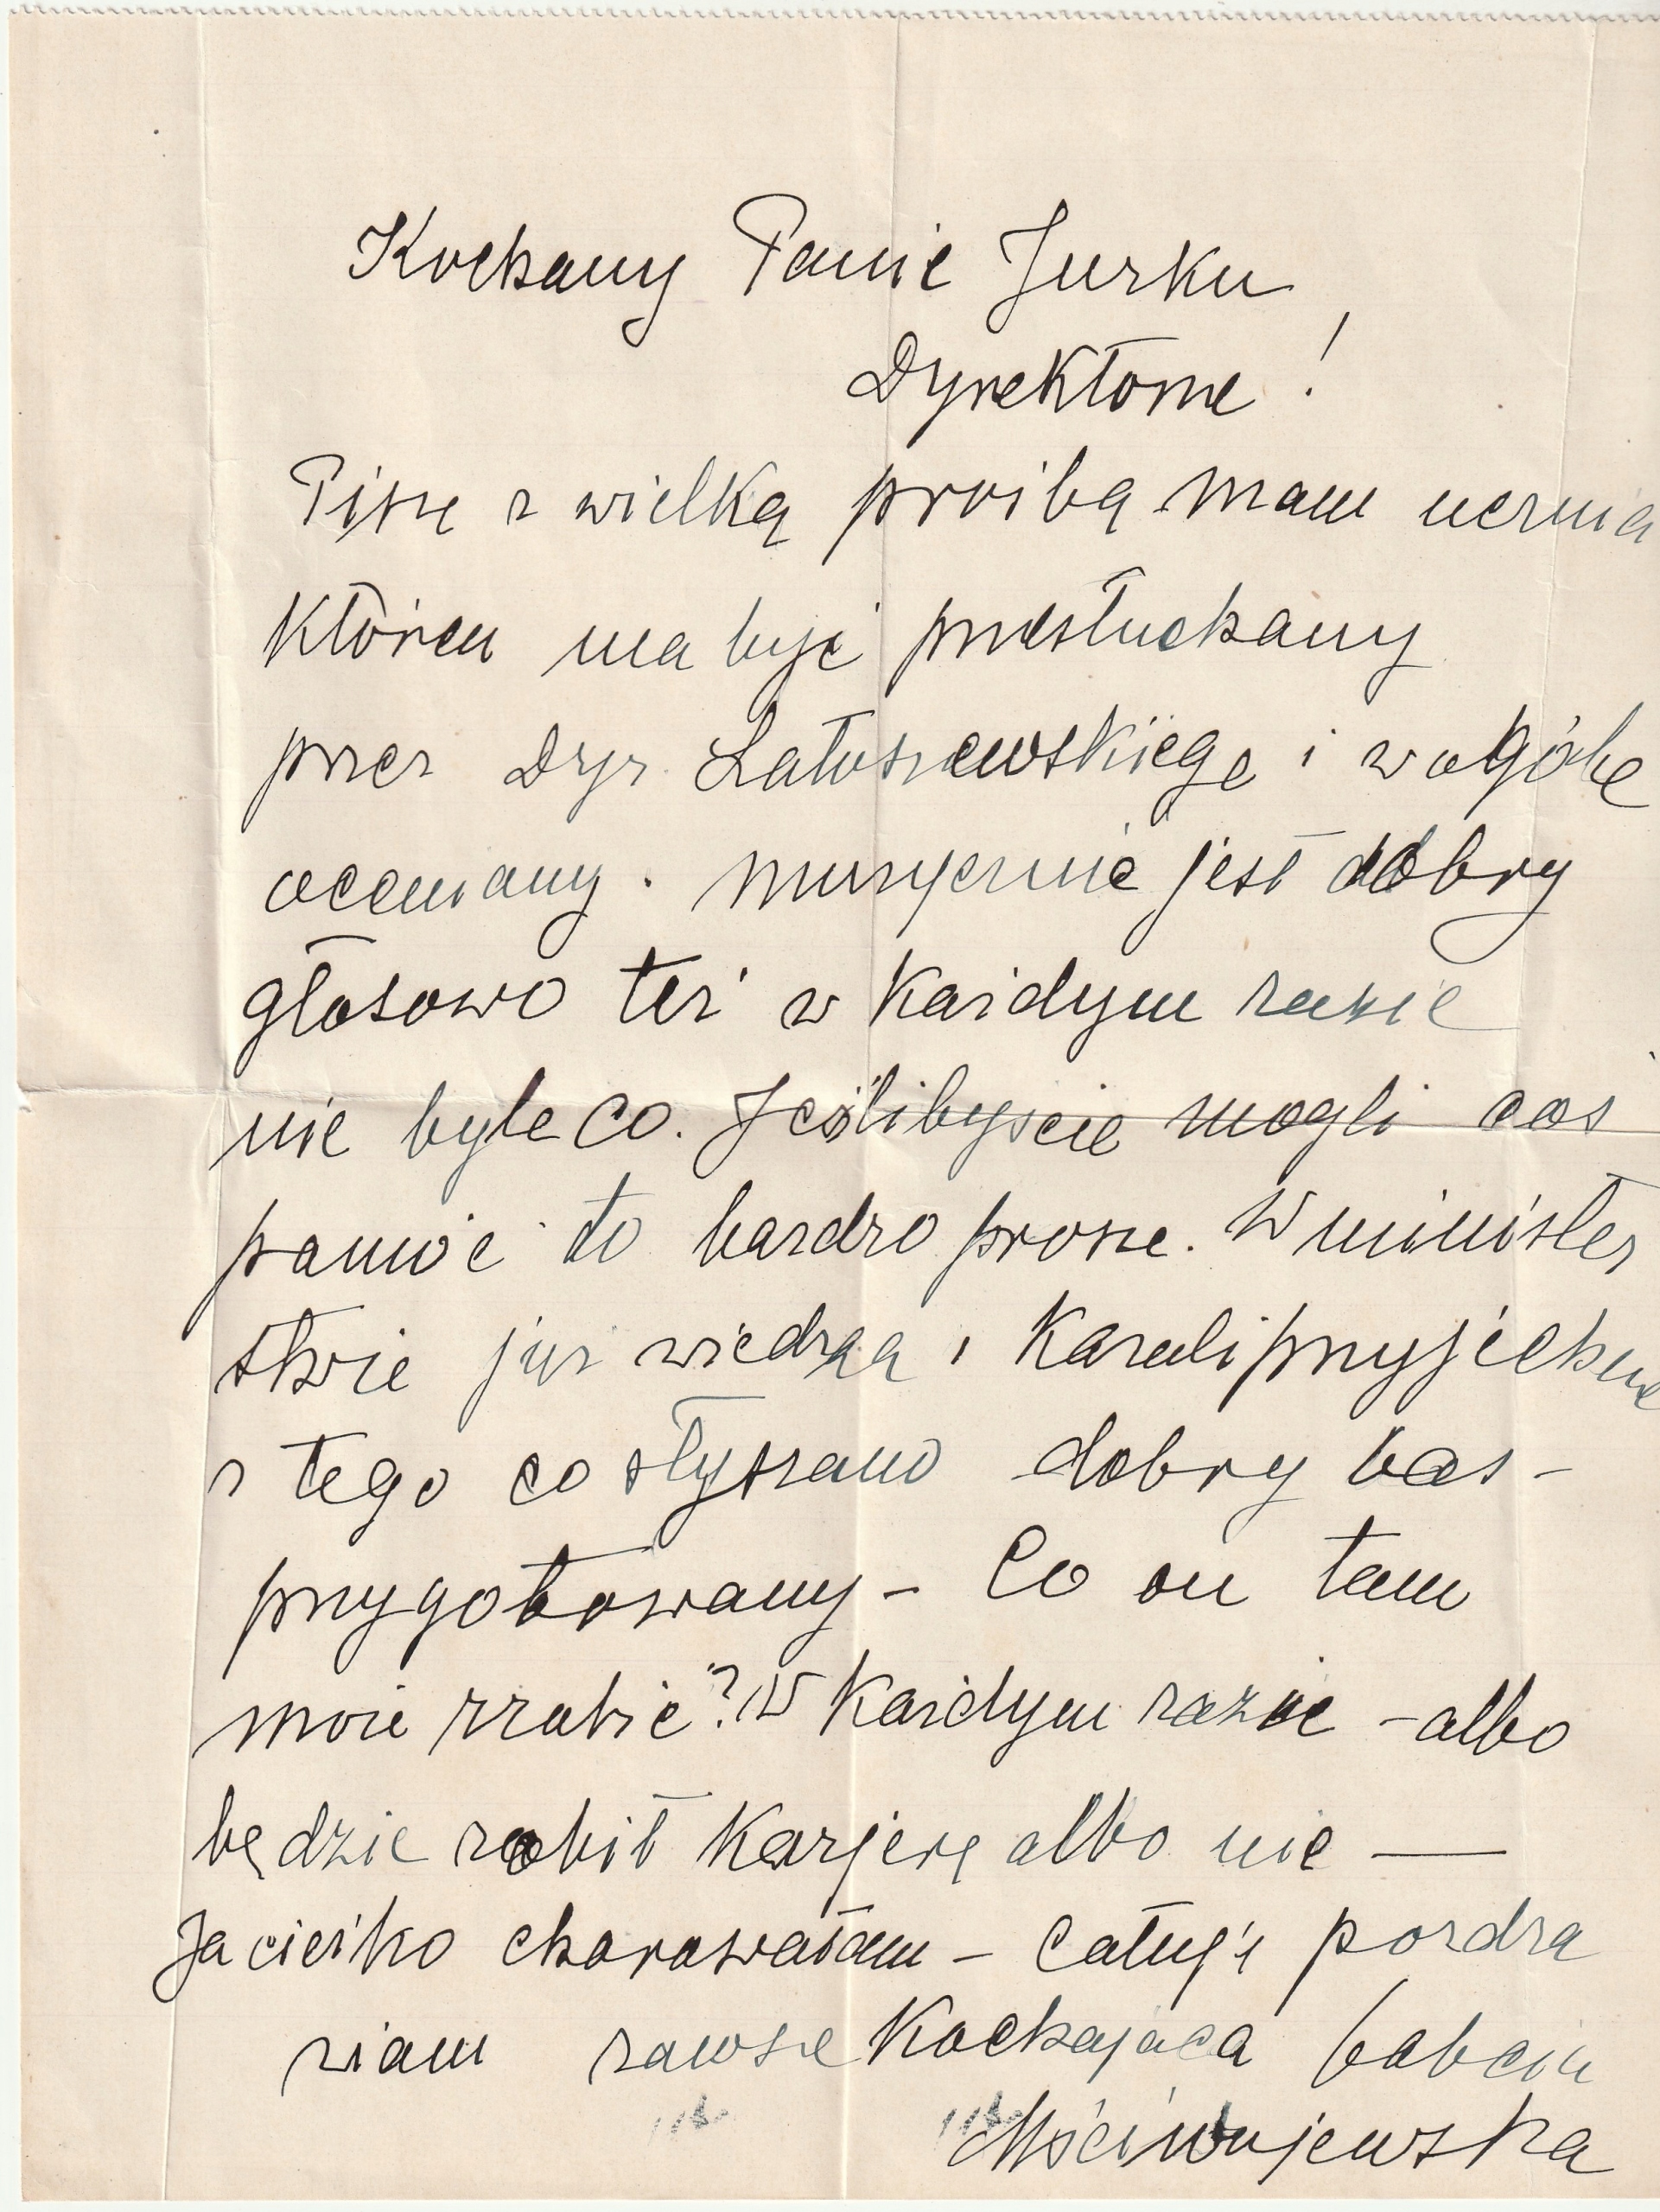 Kochany Panie Jurku
Dyrektorze!
Piszę z wielką prośbą mam ucznia
któren ma być przesłuchany
przez Dyr. Latoszewskiego i wogóle
oceniany. muzycznie jest dobry
głosowo też w każdym razie
nie byle co. Jeślibyście mogli coś
pomóc to bardzo proszę. W minister
stwie już wiedzą i kazali przyjechać
z tego co słyszano dobry bas –
przygotowany – Co on tam
może zrobić? W każdym razie – albo
będzie robił karjerę albo nie —
Ja ciężko chorowałam – całuję pozdra
wiam zawsze kochająca babcia
Mściwujewska